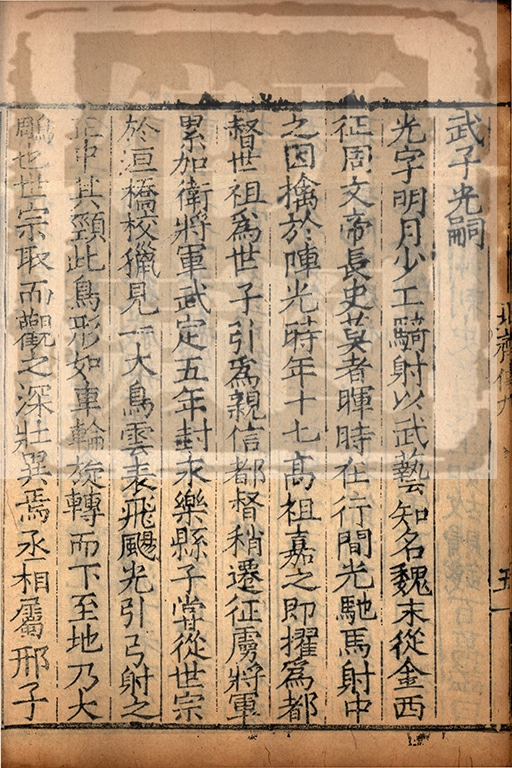 武子光嗣
光字明月少工騎射以武藝知名魏末從金西
征周文帝長史莫者暉時在行間光馳馬射中
之因擒於陣光時年十七高祖嘉之即擢爲都
督世祖爲世子引爲親信都督稍遷征虜將軍
累加衛將軍武定五年封永樂縣子嘗從世宗
於洹橋校獵見一大鳥雲表飛颺光引弓射之
正中其頸此鳥形如車輪旋轉而下至地乃大
鵰也世宗取而觀之深壯異焉丞相屬邢子